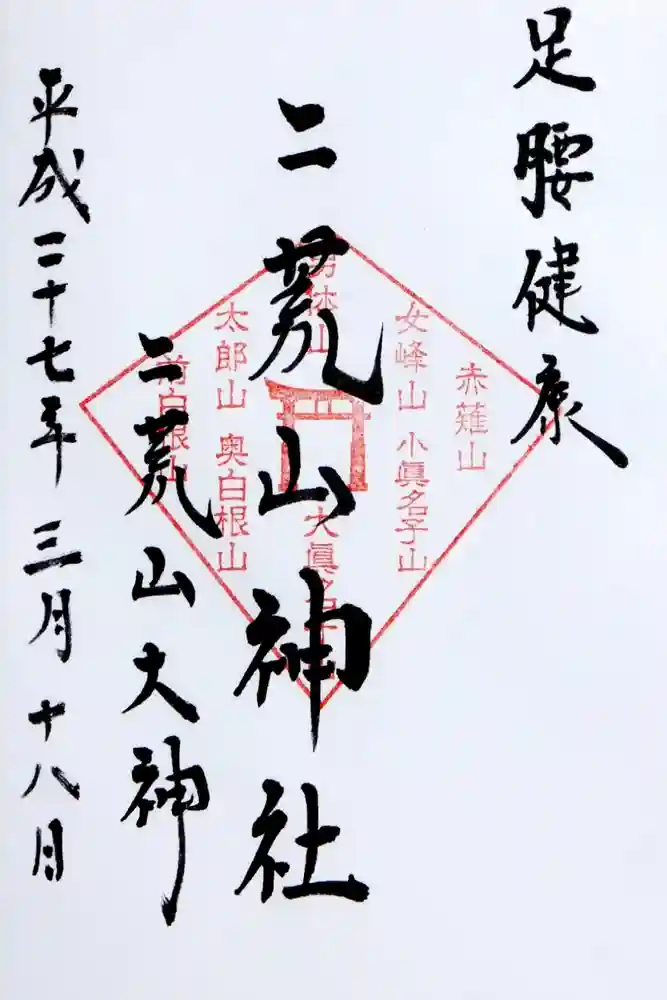 足腰健康
赤薙山
女峰山 小眞名子山
二荒山神社
男体山
大眞名子山
太郎山 奥白根山
前白根山
二荒山大神
平成二十七年三月十八日